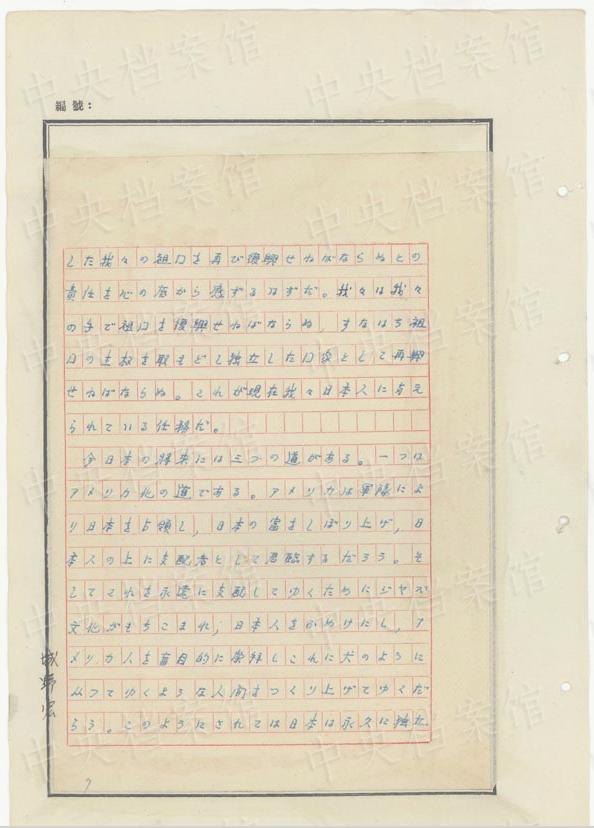 編號：
した我々の祖口を再び復興せねばならぬとの
責任を心の底から感ずるはずだ。我々は我々
の手で祖口を復興せねばならぬ，すなはち祖
口の主权を取もどし独立した口家として再興
せねばならぬ。これが現在我々日本人に与え
られている任務だ。
今日本の将来には三つの道がある。一つは
アメリカ化の道である。アメリカは軍隊によ
り日本を占領し，日本の富をしぼり上げ，日
本人の上に支配者として君臨するだろう。そ
してこれを永遠に支配してゆくためにジャズ
文化がもちこまれ，日本人をかぬけにし，ア
メリカ人を盲目的に崇拜しこれに犬のように
从つてゆくような人間をつくり上げてゆくだ
らう。このようにされては日本は永久に独立
城野宏
7
中央档案馆